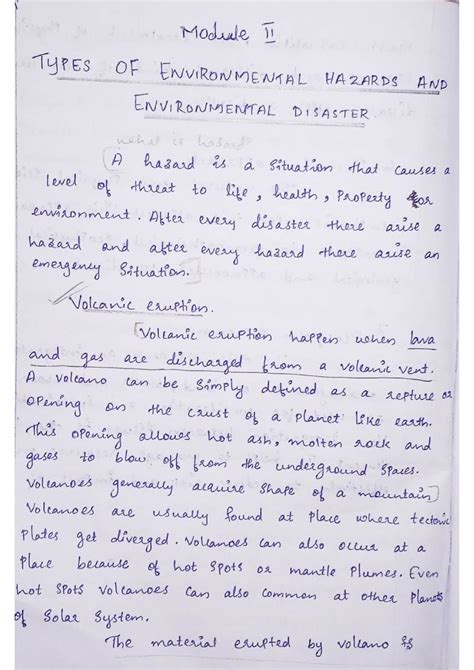 Module II
TYPES OF ENVIRONMENTAL HAZARDS AND
ENVIRONMENTAL DISASTER
what is hazard
A hazard is a situation that causes a
level of threat to life, health, Property or
environment. After every disaster there arise a
hazard and after every hazard there arise an
emergency Situation.
Volcanic eruption.
Volcanic eruption happen when lava
and gas are discharged from a volcanic vent.
A volcano can be Simply defined as a repture or
opening on the crust of a Planet like earth.
This opening allows hot ash, molten rock and
gases to blow off from the underground Spaces.
Volcanoes generally acquire Shape of a mountain
Volcanoes are usually found at Place where tectonic
Plates get diverged. Volcanoes can also occur at a
Place because of hot Spots or mantle Plumes. Even
hot Spots volcanoes can also common at other Planets
of Solar System.
The material erupted by volcano is